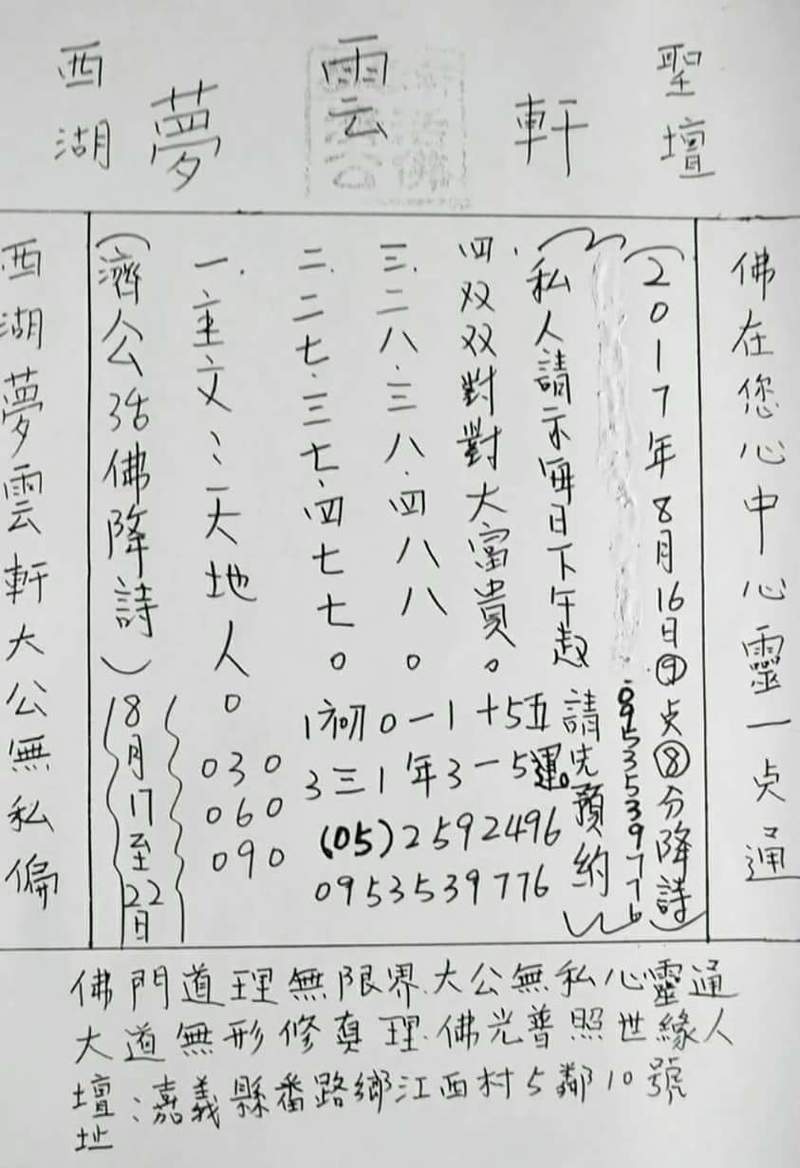 西湖夢雲軒聖壇
佛在您心中心靈一点通
(2017年8月16日⑨点⑧分降詩)
0953539776
私人請示每日下午起請先預約
四.双双對對大富貴。
三.二八.三八.四八八。
二.二七.三七.四七七。
一.主文:三天地人。
030
060
090
1初0一1十5五
3三1年3一5運。
(05)2592496
0953539776
(濟公活佛降詩)
8月17至22日
西湖夢雲軒大公無私偏
佛門道理無限界.大公無私心靈通
大道無形修真理.佛光普照世緣人
壇址:嘉義縣番路鄉江西村5鄰10號